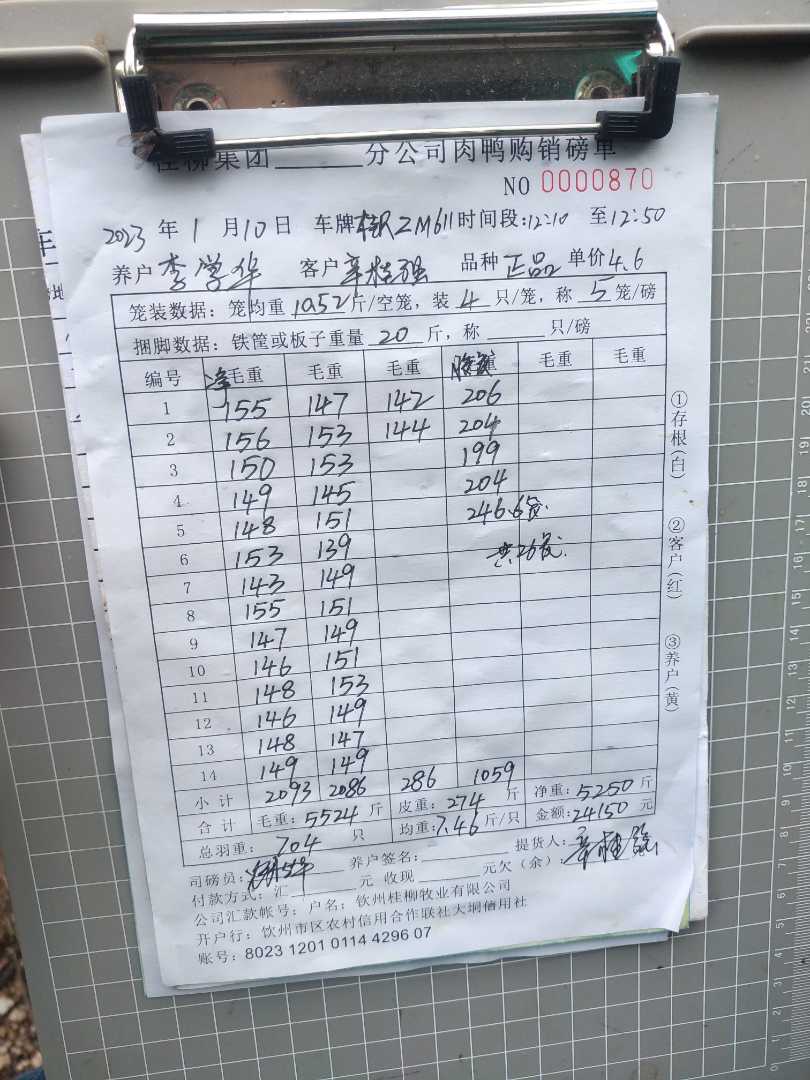 桂柳集团______分公司肉鸭购销磅单
NO 0000870
2023 年 1 月 10 日 车牌 桂RZM611 时间段:12:10 至 12:50
养户 李学华 客户 辛桂强 品种 正品 单价 4.6
笼装数据：笼均重 10.52 斤/空笼，装 4 只/笼，称 5 笼/磅
捆脚数据：铁筐或板子重量 20 斤，称______只/磅
编号 净毛重 毛重 毛重 毛重 毛重
1 155 147 142 206
2 156 153 144 204
3 150 153 199
4 149 145 204
5 148 151 246.6笼.
6 153 139 共26笼.
7 143 149
8 155 151
9 147 149
10 146 151
11 148 153
12 146 149
13 148 147
14 149 149
小计 2093 2086 286 1059
合计 毛重：5524 斤 皮重：274 斤 净重：5250 斤
总羽重：704 只 均重：7.46 斤/只 金额：24150 元
司磅员： 养户签名： 提货人：辛桂强
付款方式：汇______元 收现______元欠（余）：
公司汇款帐号：户名：钦州桂柳牧业有限公司
开户行：钦州市区农村信用合作联社大垌信用社
账号：8023 1201 0114 4296 07
①存根(白) ②客户(红) ③养户(黄)